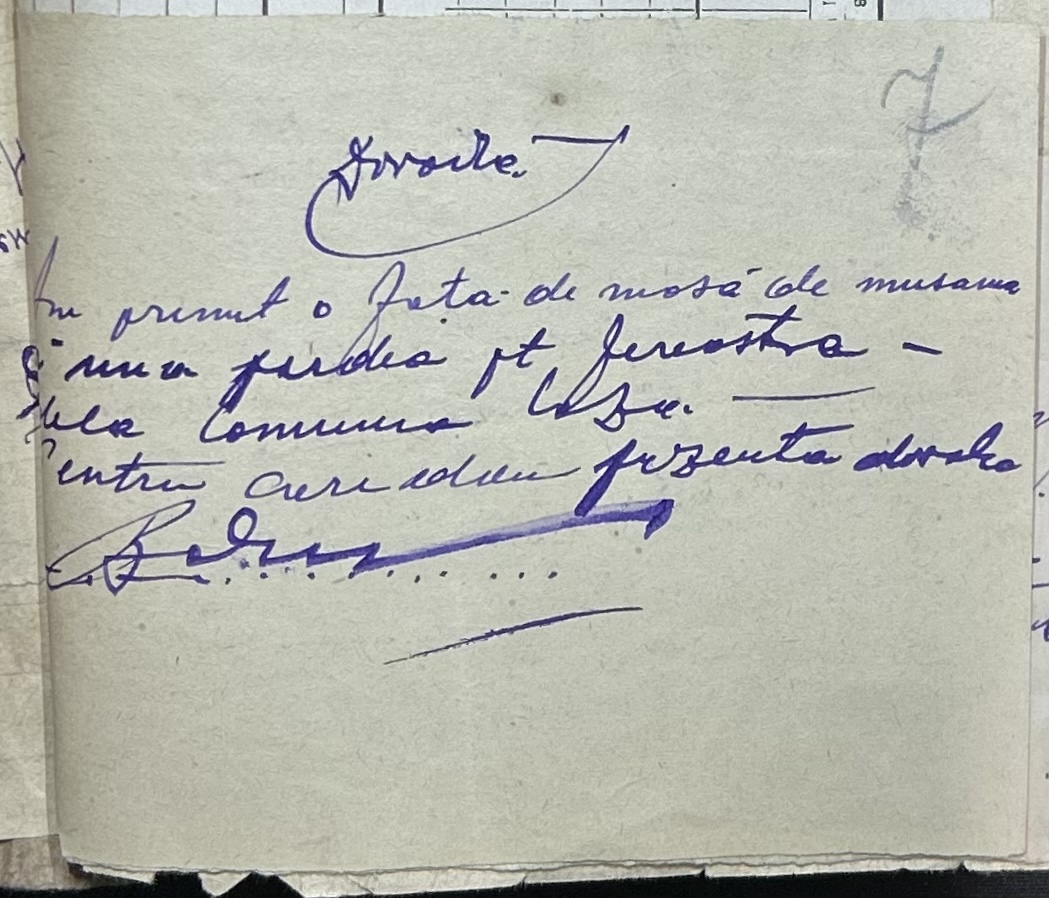 7
Dovada.
Am primit o fata de masă de musama
și una perdea pt fereastra –
dela Comuna
Pentru care dau prezenta dovada